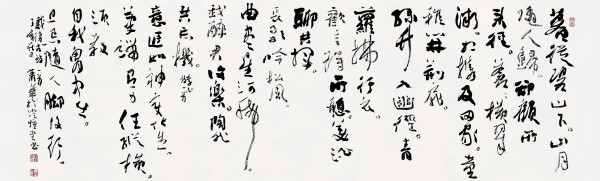 暮從碧山下山月
隨人歸卻顧所
來徑蒼蒼橫翠
微相攜及田家童
稚開荊扉
綠竹入幽徑青
蘿拂行衣
歡言得所憩美酒
聊共揮
長歌吟松風
曲盡星河稀
我醉君復樂陶然
共忘機
意匠如神變化生
筆端有力任縱橫
須教
自我胸中出
切忌隨人腳後行